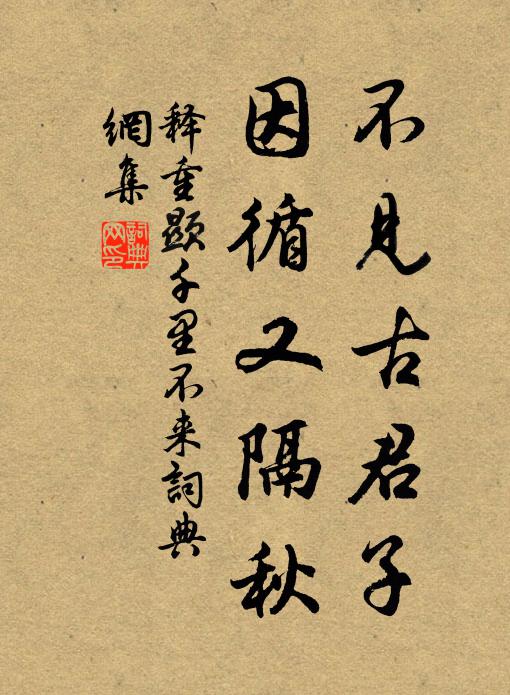 不见古君子
因循又隔秋
释重显千里不来詞典
網集
詞典
网印